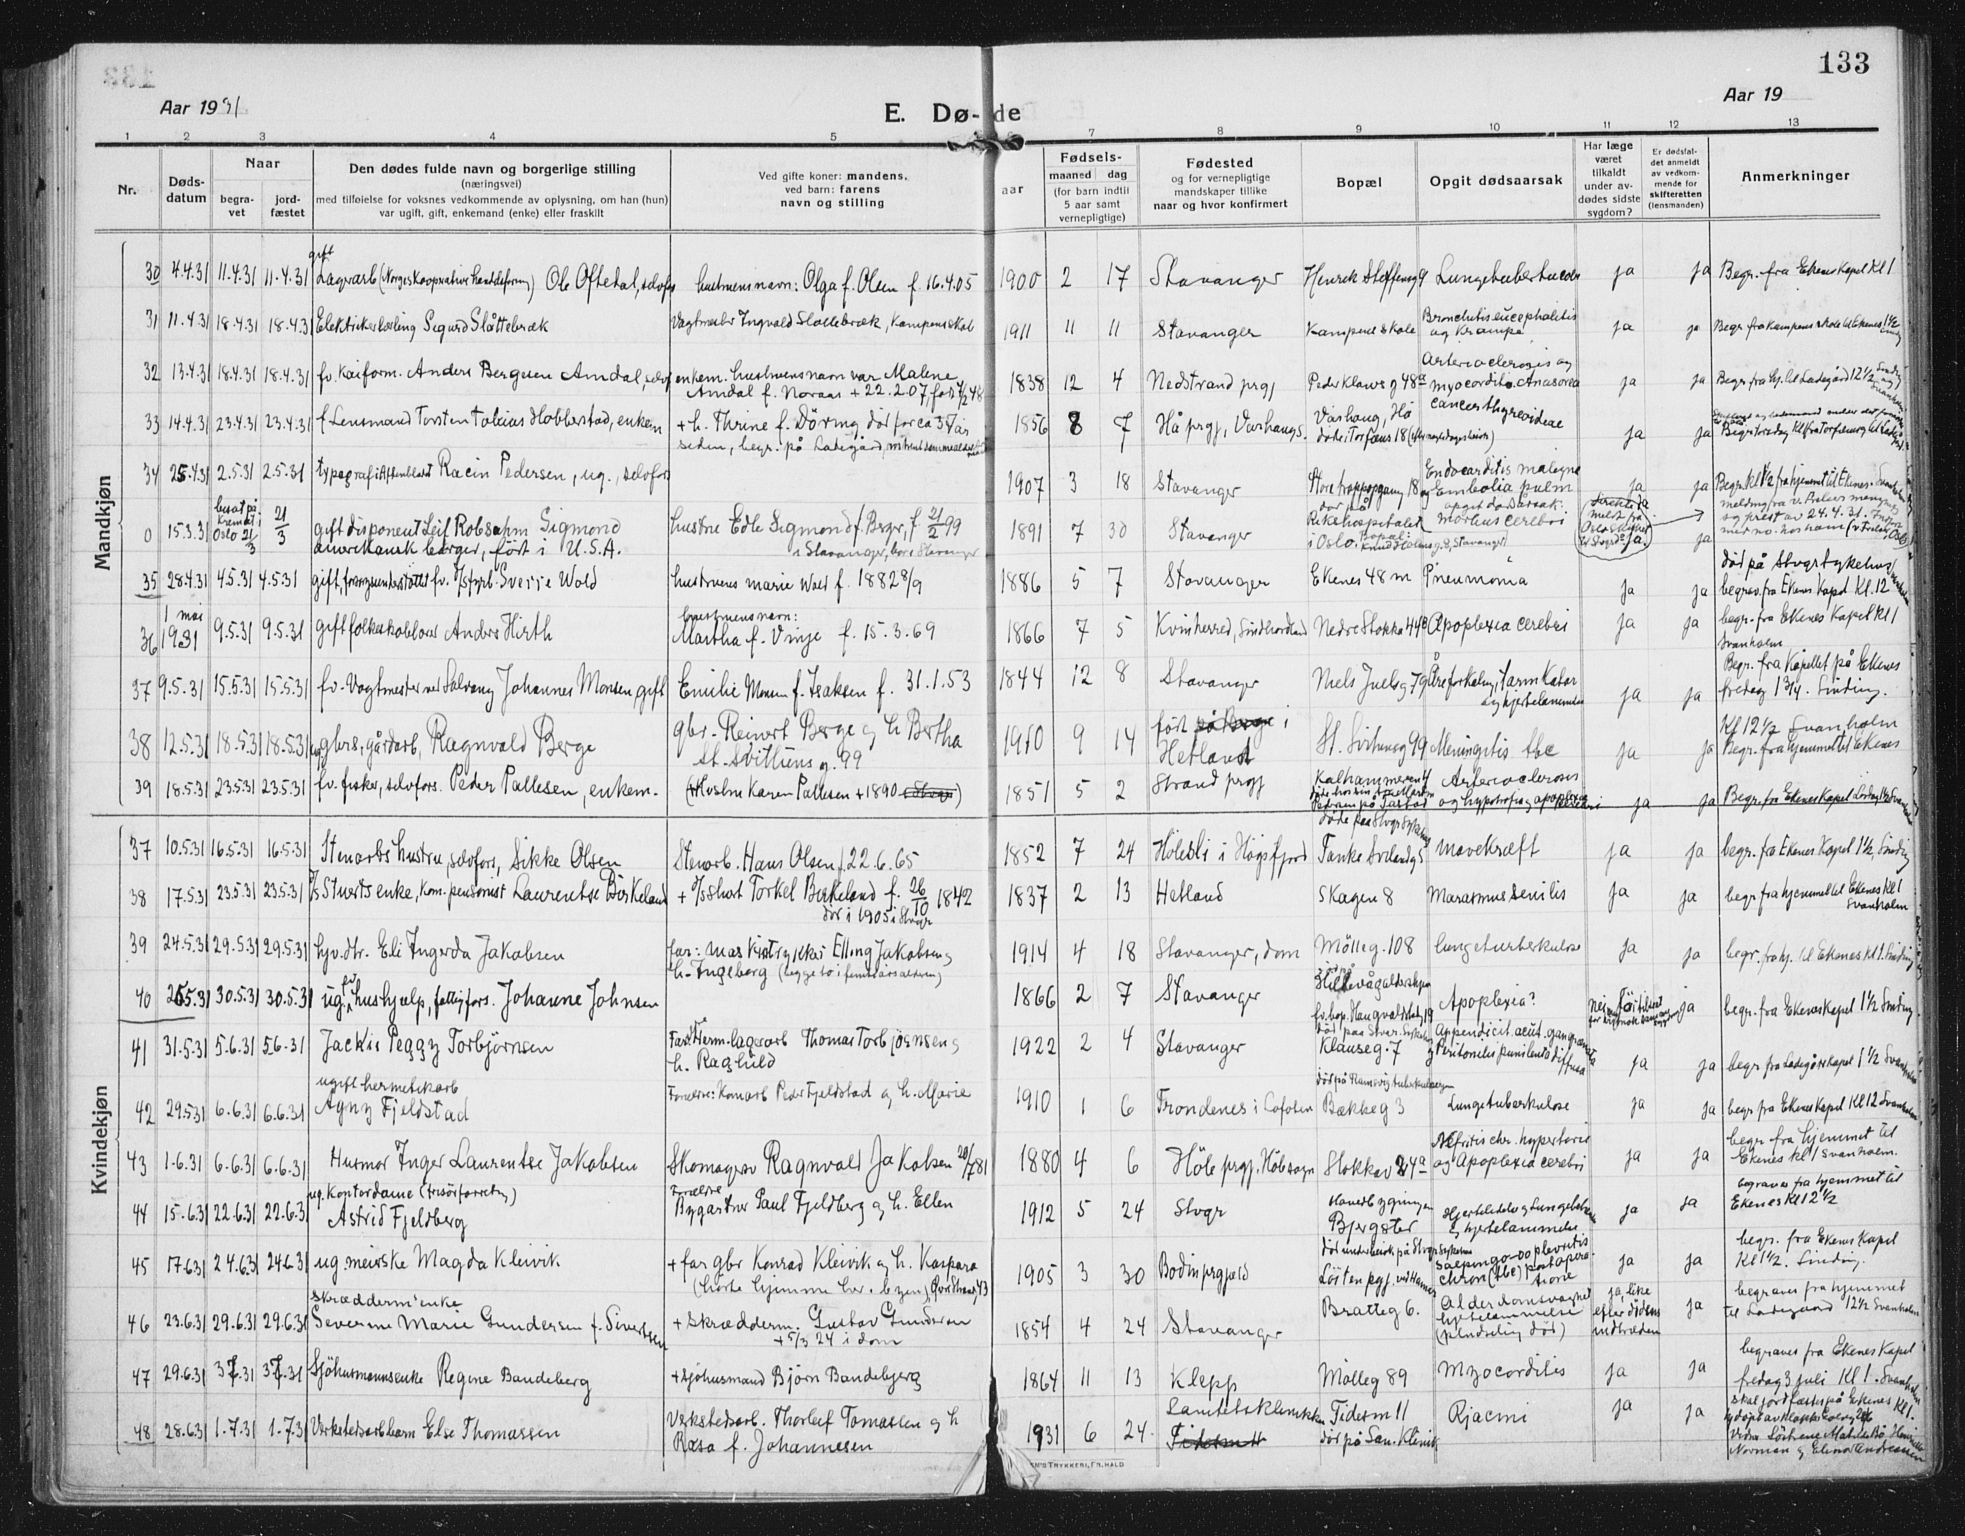 133
Aar 1931
E. Dø- de
Aar 19
1 2 3 4 5 7 8 9 10 11 12 13
Nr.
Døds-datum
Naar
begra-vet
jord-fæstet
Den dødes fulde navn og borgerlige stilling
(næringsvei)
med tilføielse for voksnes vedkommende av oplysning, om han (hun)
var ugift, gift, enkemand (enke) eller fraskilt
Ved gifte koner: mandens,
ved barn: farens
navn og stilling
aar
Fødsels-
maaned dag
(for barn indtil
5 aar samt
vernepligtige)
Fødested
og for vernepligtige
mandskaper tillike
naar og hvor konfirmert
Bopæl
Opgit dødsaarsak
Har læge
været
tilkaldt
under av-
dødes sidste
sygdom?
Er dødsfal-
det anmeldt
av vedkom-
mende for
skifteretten
(lensmanden)
Anmerkninger
Mandkjøn
30 4.4.31 11.4.31 11.4.31 gift Lagerarb (Norges Kooperative Handelsforening) Ole Oftedal, selvfors hustruens navn: Olga f. Olsen f. 16.4.05 1900 2 17 Stavanger Henrik Steffensg 9 Lungetuberkulose ja ja Begr. fra Ekenes Kapel Kl 1
31 11.4.31 18.4.31 18.4.31 Elektrikerlærling Sigurd Slåttebræk Vagtmester Ingvald Slåttebræk, Kampen skole 1911 11 11 Stavanger Kampen skole Bronchitis encephalitis og Krampe ja ja Begr. fra Kampens skole til Ekenes 1 1/2
32 13.4.31 18.4.31 18.4.31 fv. Kaiform. Anders Berguen Amdal, selvf enkem. hustruens navn var Malene Amdal f. Noraas + 22.2.07, 1838 12 4 Nedstrand prgj Peder Klows g 48a Arteriosclerosis og myocardit. Anasarca ja ja Begr. fra hj. til Ladegård 12 1/2
33 14.4.31 23.4.31 23.4.31 f Lensmand Torsten Tobias Hobberstad, enkem + h. Thrine f. Döring död for ca 35 år siden, begr. på Ladegård, 1856 8 7 Hå prgj, Varhaugs. Varhaug, Hå döde i Torfæus 18 cancer thyreoideae ja ja
34 25.4.31 2.5.31 2.5.31 typograf Racin Pedersen, ug., selvfors 1907 3 18 Stavanger Store trappegang 18 Endocarditis maligne og Embolia pulm ja ja Begr. Kl 1/2 fra hjemmet til Ekenes.
0 15.3.31 besat på Kremat. i Oslo 21/3 21/3 gift disponent Leif Robsahm Sigmond amerikansk borger, født i U.S.A. hustru Edle Sigmond f. Berger, f 21/2 99 i Stavanger, bor i Stavanger 1891 7 30 Stavanger dör på Rikshospitalet i Oslo. Bopæl: Knud Holms g. 8, Stavanger opgit dødsårsak: morbus cerebri ja. ja
35 28.4.31 4.5.31 4.5.31 gift, fv. Sverre Wold hustruens Marie Wold f. 1882 8/9 1886 5 7 Stavanger Ekenes 48 m Pneumonia ja ja död på Stvgr sykehus begrav. fra Ekenes Kapel Kl. 12
36 1 mai 1931 9.5.31 9.5.31 gift Anders Hirth hustruens navn: Martha f. Vinje f. 15.3.69 1866 7 5 Kvinherred, Sindhordland Nedre Stokka 44c Apoplexia cerebri ja ja begr. fra Ekenes Kapel Kl 1 Svanholm
37 9.5.31 15.5.31 15.5.31 fv. Vagtmester ved Salvang Johannes Monsen gift Emilie Monsen f. Isaksen f. 31.1.53 1844 12 8 Stavanger Niels Juels g 79 Åreforkalkn, Tarmkatar og hjertelammelse ja ja Begr. fra Kapellet på Ekenes fredag 1 3/4. Sinding.
38 12.5.31 18.5.31 18.5.31 ug gbrs, gårdarb, Ragnvald Berge gbr. Reinert Berge og h Bertha St. Svithuns g. 99 1910 9 14 født i Hetland St. Svithuns g 99 Meningitis tbc ja ja Kl 12 1/2 Svanholm Begr. fra hjemmet til Ekenes
39 18.5.31 23.5.31 23.5.31 fv. fisker, selvfors. Peder Pallesen, enkem. (Hustru Karen Pallesen + 1890) 1851 5 2 Strand prgj Kalhammeren 4 Arteriosclerosis og hypertrofia og apoplexia cerebri ja ja Begr. fra Ekenes Kapel Lørdag 1 1/2 Svanholm
Kvindekjøn
37 10.5.31 16.5.31 16.5.31 Stenarbs hustru, selvfors., Sikke Olsen Stenarb. Hans Olsen f. 22.6.65 1852 7 24 Hölesli i Högsfjord døde paa Stvgr Sykehus Tanke Svilandg 5 Mavekræft ja ja begr. fra Ekenes Kapel 1 1/2, Sinding
38 17.5.31 23.5.31 23.5.31 Stuerts enke, kom. pensionist Laurentse Birkeland + Stuert Torkel Birkeland f. 26/10 1842 död i 1905 i Stvgr 1837 2 13 Hetland Skagen 8 Marasmus senilis ja ja begr. fra hjemmet til Ekenes Kl 1 Svanholm
39 24.5.31 29.5.31 29.5.31 hjv. dtr. Eli Ingerda Jakobsen far: Elling Jakobsen og h. Ingeborg (begge to i femtiårsalderen) 1914 4 18 Stavanger, dom Mölleg. 108 lungetuberkulose ja ja begr. fra hj. til Ekenes Kl 1. Sinding
40 26.5.31 30.5.31 30.5.31 ug. fv. hushjælp, fattigfors. Johanne Johnsen 1866 2 7 Stavanger Hillevåg aldershjem fv. bop. Haugvaldstadg 19 Apoplexia? nei ja begr. fra Ekenes Kapel 1 1/2 Sinding
41 31.5.31 5.6.31 5.6.31 Jackie Peggy Torbjörnsen Foræ: Herm. lagerarb Thomas Torbjörnsen og h. Raghild 1922 2 4 Stavanger död paa Stvgr. Sykehus Klauseg. 7 Appendicit. acut. gangrænosa Peritonitis purulenta diffusa ja ja begr. fra Ladegårds Kapel 1 1/2 Svanholm
42 29.5.31 6.6.31 6.6.31 ugift hermetikarb Agny Fjeldstad Forældre: Komarb Peder Fjeldstad og h. Marie 1910 1 6 Trondenes i Lofoten död på Ramsvig tuberkulosehjem Bækkeg 3 Lungetuberkulose ja ja begr. fra Ekenes Kapel Kl 12 Svanholm
43 1.6.31 6.6.31 6.6.31 Husmor Inger Laurentse Jakobsen Skomagerm Ragnvald Jakobsen 20/7 81 1880 4 6 Höle prgj. Höle sogn Stokkav 24a Nefritis chr. hypertonie og Apoplexia cerebri ja ja begr. fra hjemmet til Ekenes kl 1 Svanholm.
44 15.6.31 22.6.31 22.6.31 ug. Kontordame (frisörforretn) Astrid Fjelberg Forældre Bygartner Paul Fjelberg og h. Ellen 1912 5 24 Stvgr Havebygningen Bjergsted og hjertelammelse ja ja begraves fra hjemmet til Ekenes Kl 12 1/2
45 17.6.31 24.6.31 24.6.31 ug. meierske Magda Kleivik + far gbr Konrad Kleivik og h. Kaspara 1905 3 30 Bodin prgjeld Löiten pgj. ved Hamar Salpingo-oophoritis chron (tbc) post operatione ja ja begr. fra Ekenes Kapel Kl 1 1/2. Sinding.
46 23.6.31 29.6.31 29.6.31 Skrædderm' enke Severine Marie Gundersen f. Sivertsen + Skrædderm. Gustav Gundersen + 5/3 24 i dom 1854 4 24 Stavanger Bratteg 6. Alderdomssvaghet hjertelammelse (pludselig død) ja, like efter dødens indtræden ja begraves fra hjemmet til Ladegaard 12 1/2 Svanholm
47 29.6.31 3.7.31 3.7.31 Sjöhusmannsenke Regine Bandeberg + sjöhusmand Björn Bandeberg 1864 11 13 Klepp Mölleg 89 Myocarditis ja ja begraves fra Ekenes Kapel fredag 3 juli Kl 1. Svanholm
48 28.6.31 1.7.31 1.7.31 Verkstedsarb barn Else Thomassen Verkstedsarb. Thorleif Tomassen og h Rosa f. Johannesen 1931 6 24 Sanitetsklinikken Tidesm 11 död på San. Klinik ja ja skal jordfæstes på Ekenes Kl 1.
TRYKKERI, FR. HALD